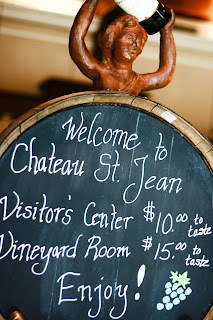 Welcome to
Chateau St. Jean
Visitor's Center $10.00 to taste
Vineyard Room $15.00 to taste
Enjoy!